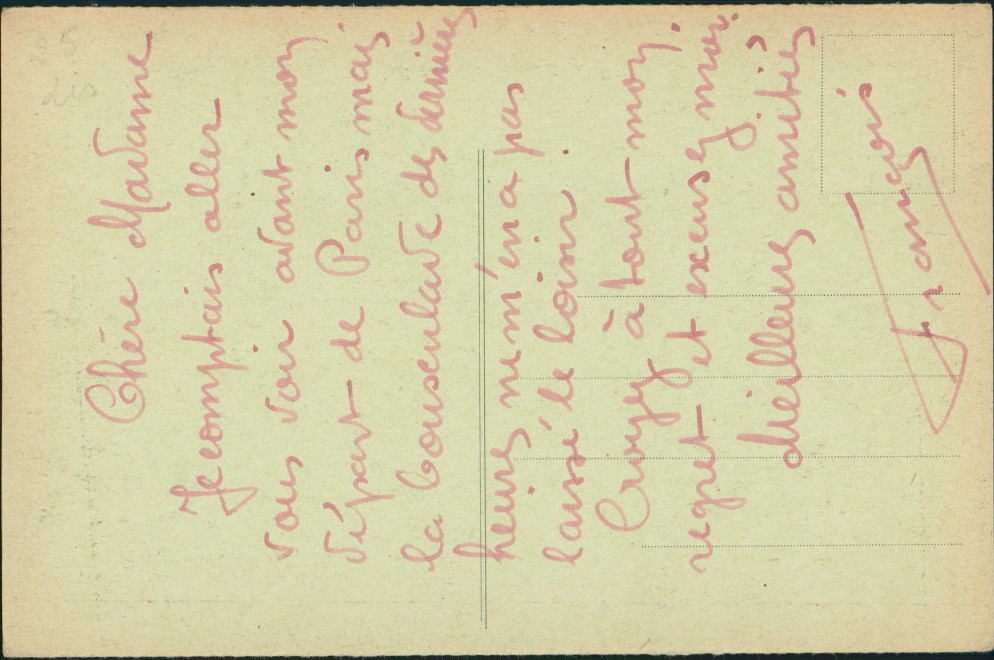 Chère Madame
Je comptais aller
vous voir avant mon
départ de Paris mais
la bousculade des dernières
heures ne m'en a pas
laissé le loisir.
Croyez à tout mon
regret et excusez moi.
Meilleures amitiés
François